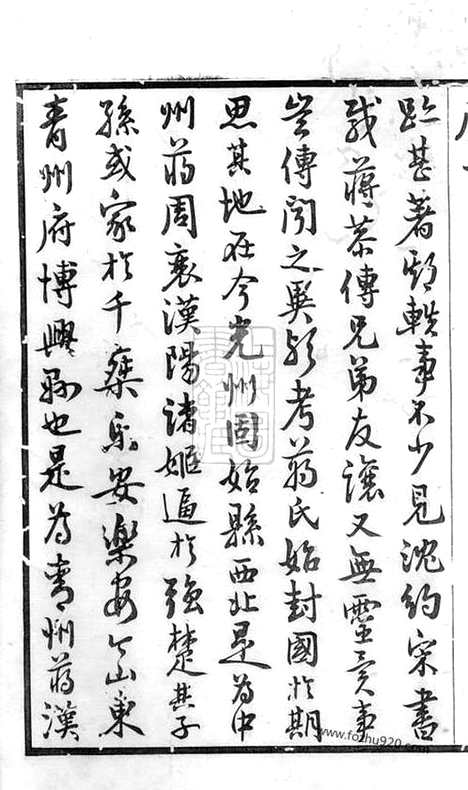 趾甚著郢軼事不少見沈約宋書
或蔣恭傳兄弟友讓又無靈貢事
豈傳聞之異歟考蔣氏始封國於期
思其地在今光州固始縣西北是為中
州蔣周衰漢陽諸姬逼於強楚其子
孫或家於千乘樂安樂安今山東
青州府博興縣也是為青州蔣漢
www.fozhu920.com